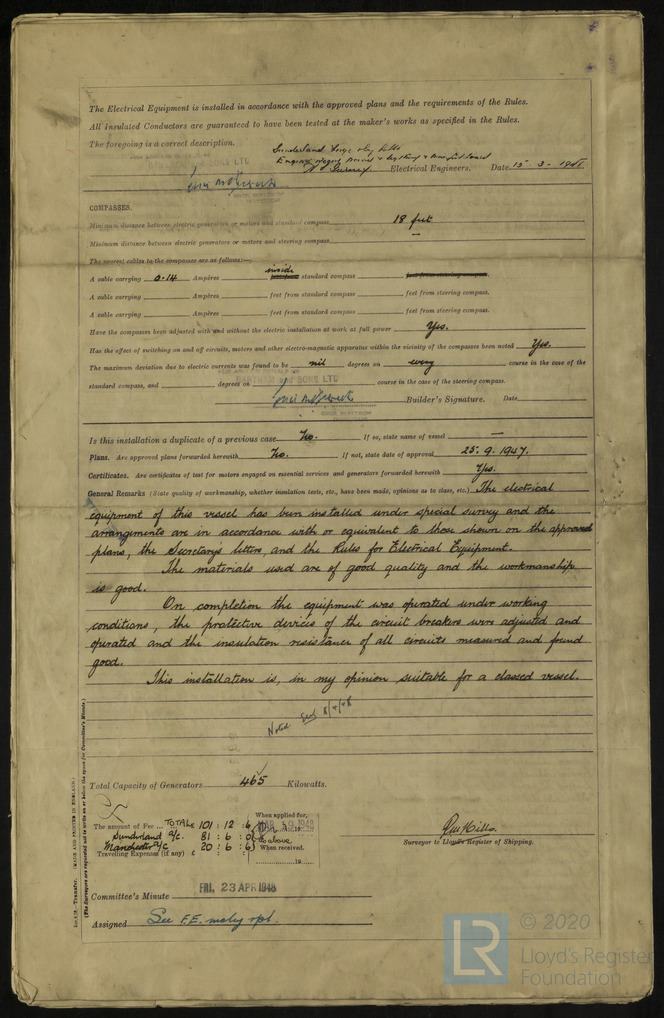 The Electrical Equipment is installed in accordance with the approved plans and the requirements of the Rules.
All Insulated Conductors are guaranteed to have been tested at the maker's works as specified in the Rules.
The foregoing is a correct description.
Sunderland Forge
Electrical Engineers. Date 15-3-1948
COMPASSES.
Minimum distance between electric generators or motors and standard compass 18 feet
Minimum distance between electric generators or motors and steering compass —
The nearest cables to the compasses are as follows:—
A cable carrying 0.14 Ampères inside standard compass
A cable carrying Ampères feet from standard compass feet from steering compass.
A cable carrying Ampères feet from standard compass feet from steering compass.
Have the compasses been adjusted with and without the electric installation at work at full power Yes.
Has the effect of switching on and off circuits, motors and other electro-magnetic apparatus within the vicinity of the compasses been noted Yes.
The maximum deviation due to electric currents was found to be nil degrees on every course in the case of the
standard compass, and degrees on course in the case of the steering compass.
Builder's Signature. Date
Is this installation a duplicate of a previous case No. If so, state name of vessel —
Plans. Are approved plans forwarded herewith No. If not, state date of approval 25.9.1947.
Certificates. Are certificates of test for motors engaged on essential services and generators forwarded herewith Yes.
General Remarks (State quality of workmanship, whether insulation tests, etc., have been made, opinions as to class, etc.) The electrical
equipment of this vessel has been installed under special survey and the
arrangements are in accordance with or equivalent to those shown on the approved
plans, the Secretarys letters, and the Rules for Electrical Equipment.
The materials used are of good quality and the workmanship
is good.
On completion the equipment was operated under working
conditions, the protective devices of the circuit breakers were adjusted and
operated and the insulation resistance of all circuits measured and found
good.
This installation is, in my opinion suitable for a classed vessel.
Noted 8/4/48
Total Capacity of Generators 465 Kilowatts.
The amount of Fee ... TOTAL £ 101 : 12 : 6
Sunderland a/c. 81 : 6 : 0
Manchester a/c 20 : 6 : 6
Travelling Expenses (if any) £ : :
When applied for,
MAR 19 1948
as above
When received.
19
Surveyor to Lloyd's Register of Shipping.
Committee's Minute FRI. 23 APR 1948
Assigned See F.E. mchy rpt.
Transfer. (MADE AND PRINTED IN ENGLAND.)
(The Surveyors are requested not to write on or below the space for Committee's Minute.)
LR © 2020
Lloyd's Register
Foundation